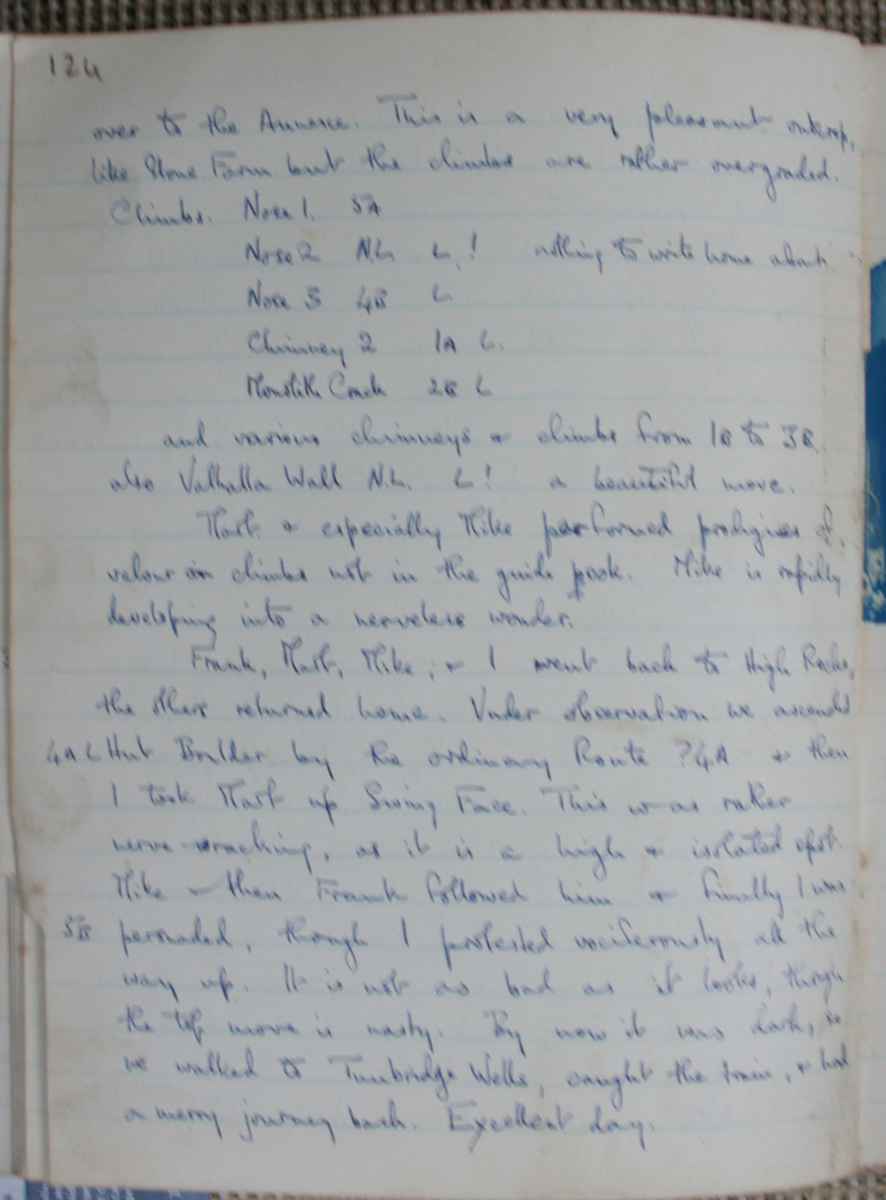 124
over to the Annexe. This is a very pleasant outcrop,
like Stone Farm but the climbs are rather overgraded.
Climbs. Nose 1. 5A
Nose 2 N.L. L.! nothing to write home about.
Nose 3 4B L
Chimney 2 1A L.
Monolith Crack 2B L
and various chimneys & climbs from 1B to 3B.
also Valhalla Wall N.L. L! a beautiful move.
& especially Mike performed prodigies of
velour on climbs not in the guide pook. Mike is rapidly
developing into a nerveless wonder.
Frank, Mike, & I went back to High Rocks,
the others returned home. Under observation we ascended
4A L Hut Boulder by the ordinary Route ?4A & then
I took up Swing Face. This was rather
nerve-wracking, as it is a high & isolated spot.
Mike then Frank followed him & finally I was
5B persuaded, though I protested vociferously all the
way up. It is not as bad as it looks, though
the top move is nasty. By now it was dark, so
we walked to Tunbridge Wells, caught the train, & had
a merry journey back. Excellent day.